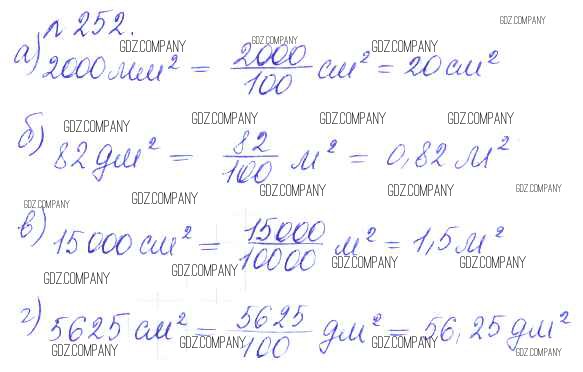 № 252.
GDZ.COMPANY
а) 2000 мм² = 2000/100 см² = 20 см²
GDZ.COMPANY GDZ.COMPANY GDZ.COMPANY
GDZ.COMPANY GDZ.COMPANY GDZ.COMPANY GDZ.COMPANY
б) 82 дм² = 82/100 м² = 0,82 м²
GDZ.COMPANY GDZ.COMPANY GDZ.COMPANY GDZ.COMPANY
GDZ.COMPANY
в) 15000 см² = 15000/10000 м² = 1,5 м²
GDZ.COMPANY GDZ.COMPANY GDZ.COMPANY GDZ.COMPANY
г) 5625 см² = 5625/100 дм² = 56,25 дм²
GDZ.COMPANY GDZ.COMPANY GDZ.COMPANY GDZ.COMPANY